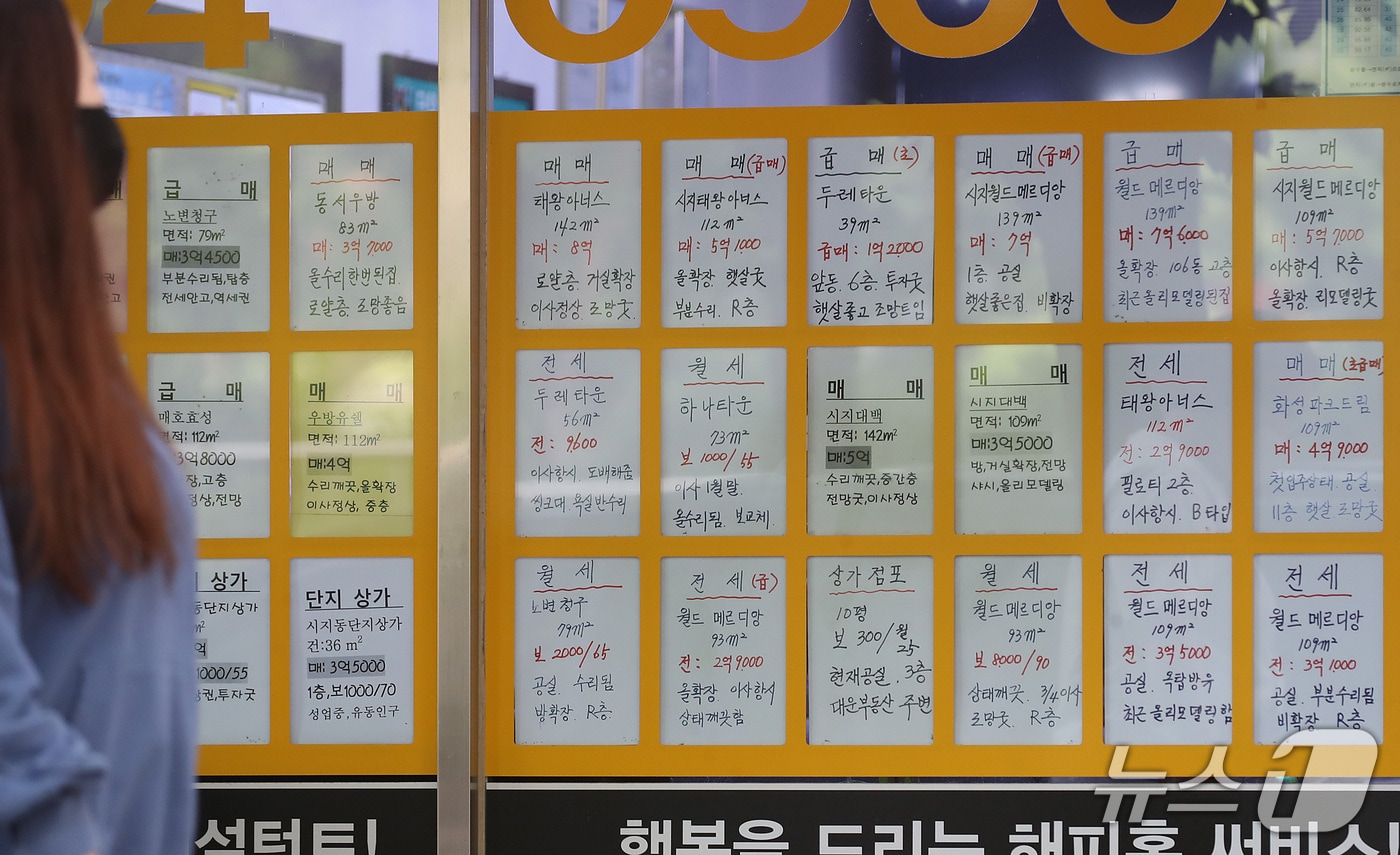 급 매
노변청구
면적: 79m²
매:3억4500
부분수리됨,탑층
전세안고,역세권
매 매
동서우방
83m²
매: 3억 7,000
올수리한번된집.
로얄층. 조망좋음
매 매
태왕아너스
142m²
매: 8억
로얄층. 거실확장
이사정상 조망굿.
매 매(급매)
시지태왕아너스
112m²
매: 5억 1000
올확장. 햇살굿
부분수리. R층
급 매(초)
두레타운
39m²
급매: 1억 2,000
앞동. 6층. 투자굿
햇살좋고 조망트임
매 매(급매)
시지월드메르디앙
139m²
매: 7억
1층. 공실
햇살좋은집. 비확장
급 매
월드메르디앙
139m²
매: 7억 6,000
올확장. 106동 고층
최근올리모델링된집
급 매
시지월드메르디앙
109m²
매: 5억 7,000
이사항시. R층
올확장. 리모델링굿
급 매
매호효성
면적: 112m²
3억8000
장,고층
,전망
매 매
우방유쉘
면적: 112m²
매:4억
수리깨끗,올확장
이사정상, 중층
전 세
두레타운
56m²
전: 9,600
이사항시. 도배해줌
씽크대. 욕실반수리
월 세
하나타운
73m²
보 1000/55
이사 1월말.
올수리됨. 보교체.
매 매
시지대백
면적: 142m²
매:5억
수리깨끗,중간층
전망굿,이사정상
매 매
시지대백
면적: 109m²
매:3억5000
방,거실확장,전망
샤시,올리모델링
전 세
태왕아너스
112m²
전: 2억 9000
필로티 2층.
이사항시. B타입
매 매(초급매)
화성파크드림
109m²
매: 4억 9,000
첫입주상태. 공실.
11층 햇살 조망굿
상가
동단지상가
억
1000/55
권,투자굿
단지 상가
시지동단지상가
건:36 m²
매: 3억5000
1층,보1000/70
성업중,유동인구
월 세
노변청구
79m²
보 2000/65
공실. 수리됨
방확장. R층.
전 세(급)
월드메르디앙
93m²
전: 2억 9000
올확장 이사항시
상태깨끗함
상가 점포
10평
보 300/월 25
현재공실. 3층
대운부동산 주변
월 세
월드메르디앙
93m²
보 8000/90
상태깨끗. 3/4이사
조망굿. R층
전 세
월드메르디앙
109m²
전: 3억 5000
공실. 옥탑방유
최근올리모델링함
전 세
월드메르디앙
109m²
전: 3억 1000
공실. 부분수리됨
비확장 R층
설턴트!
행복을 드리는 해피홈 서비스
뉴스1